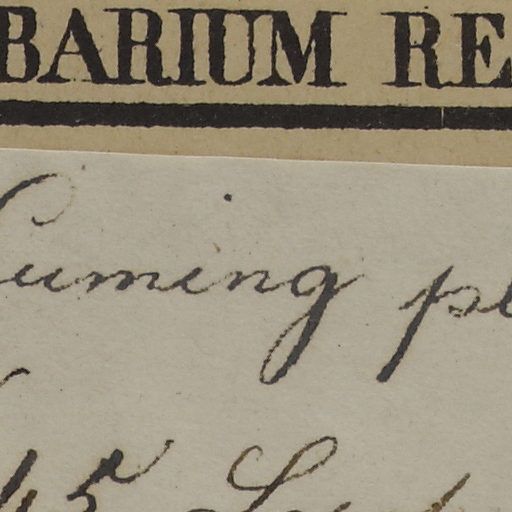 BARIUM RE
Cuming pl
45